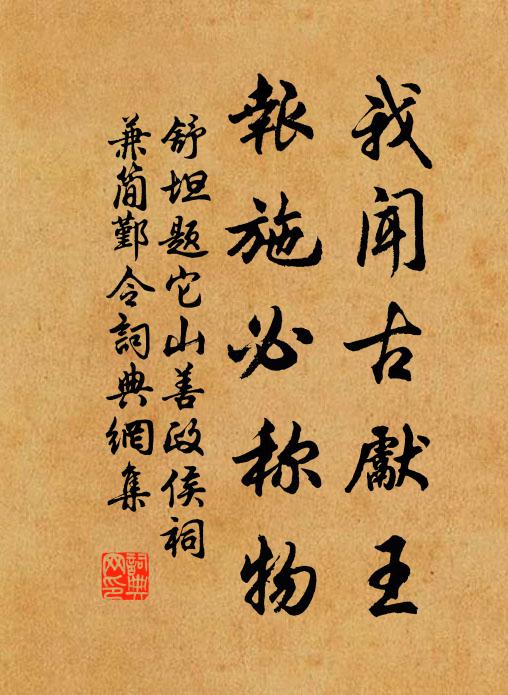 我闻古獻王
報施必称物
舒坦题它山善政侯祠
兼简鄞令詞典網集
詞典网印